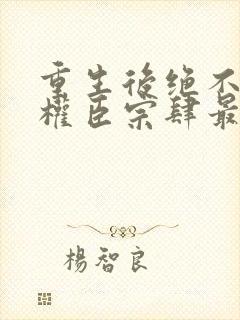 重生後绝不
權臣宗肆最
楊智良